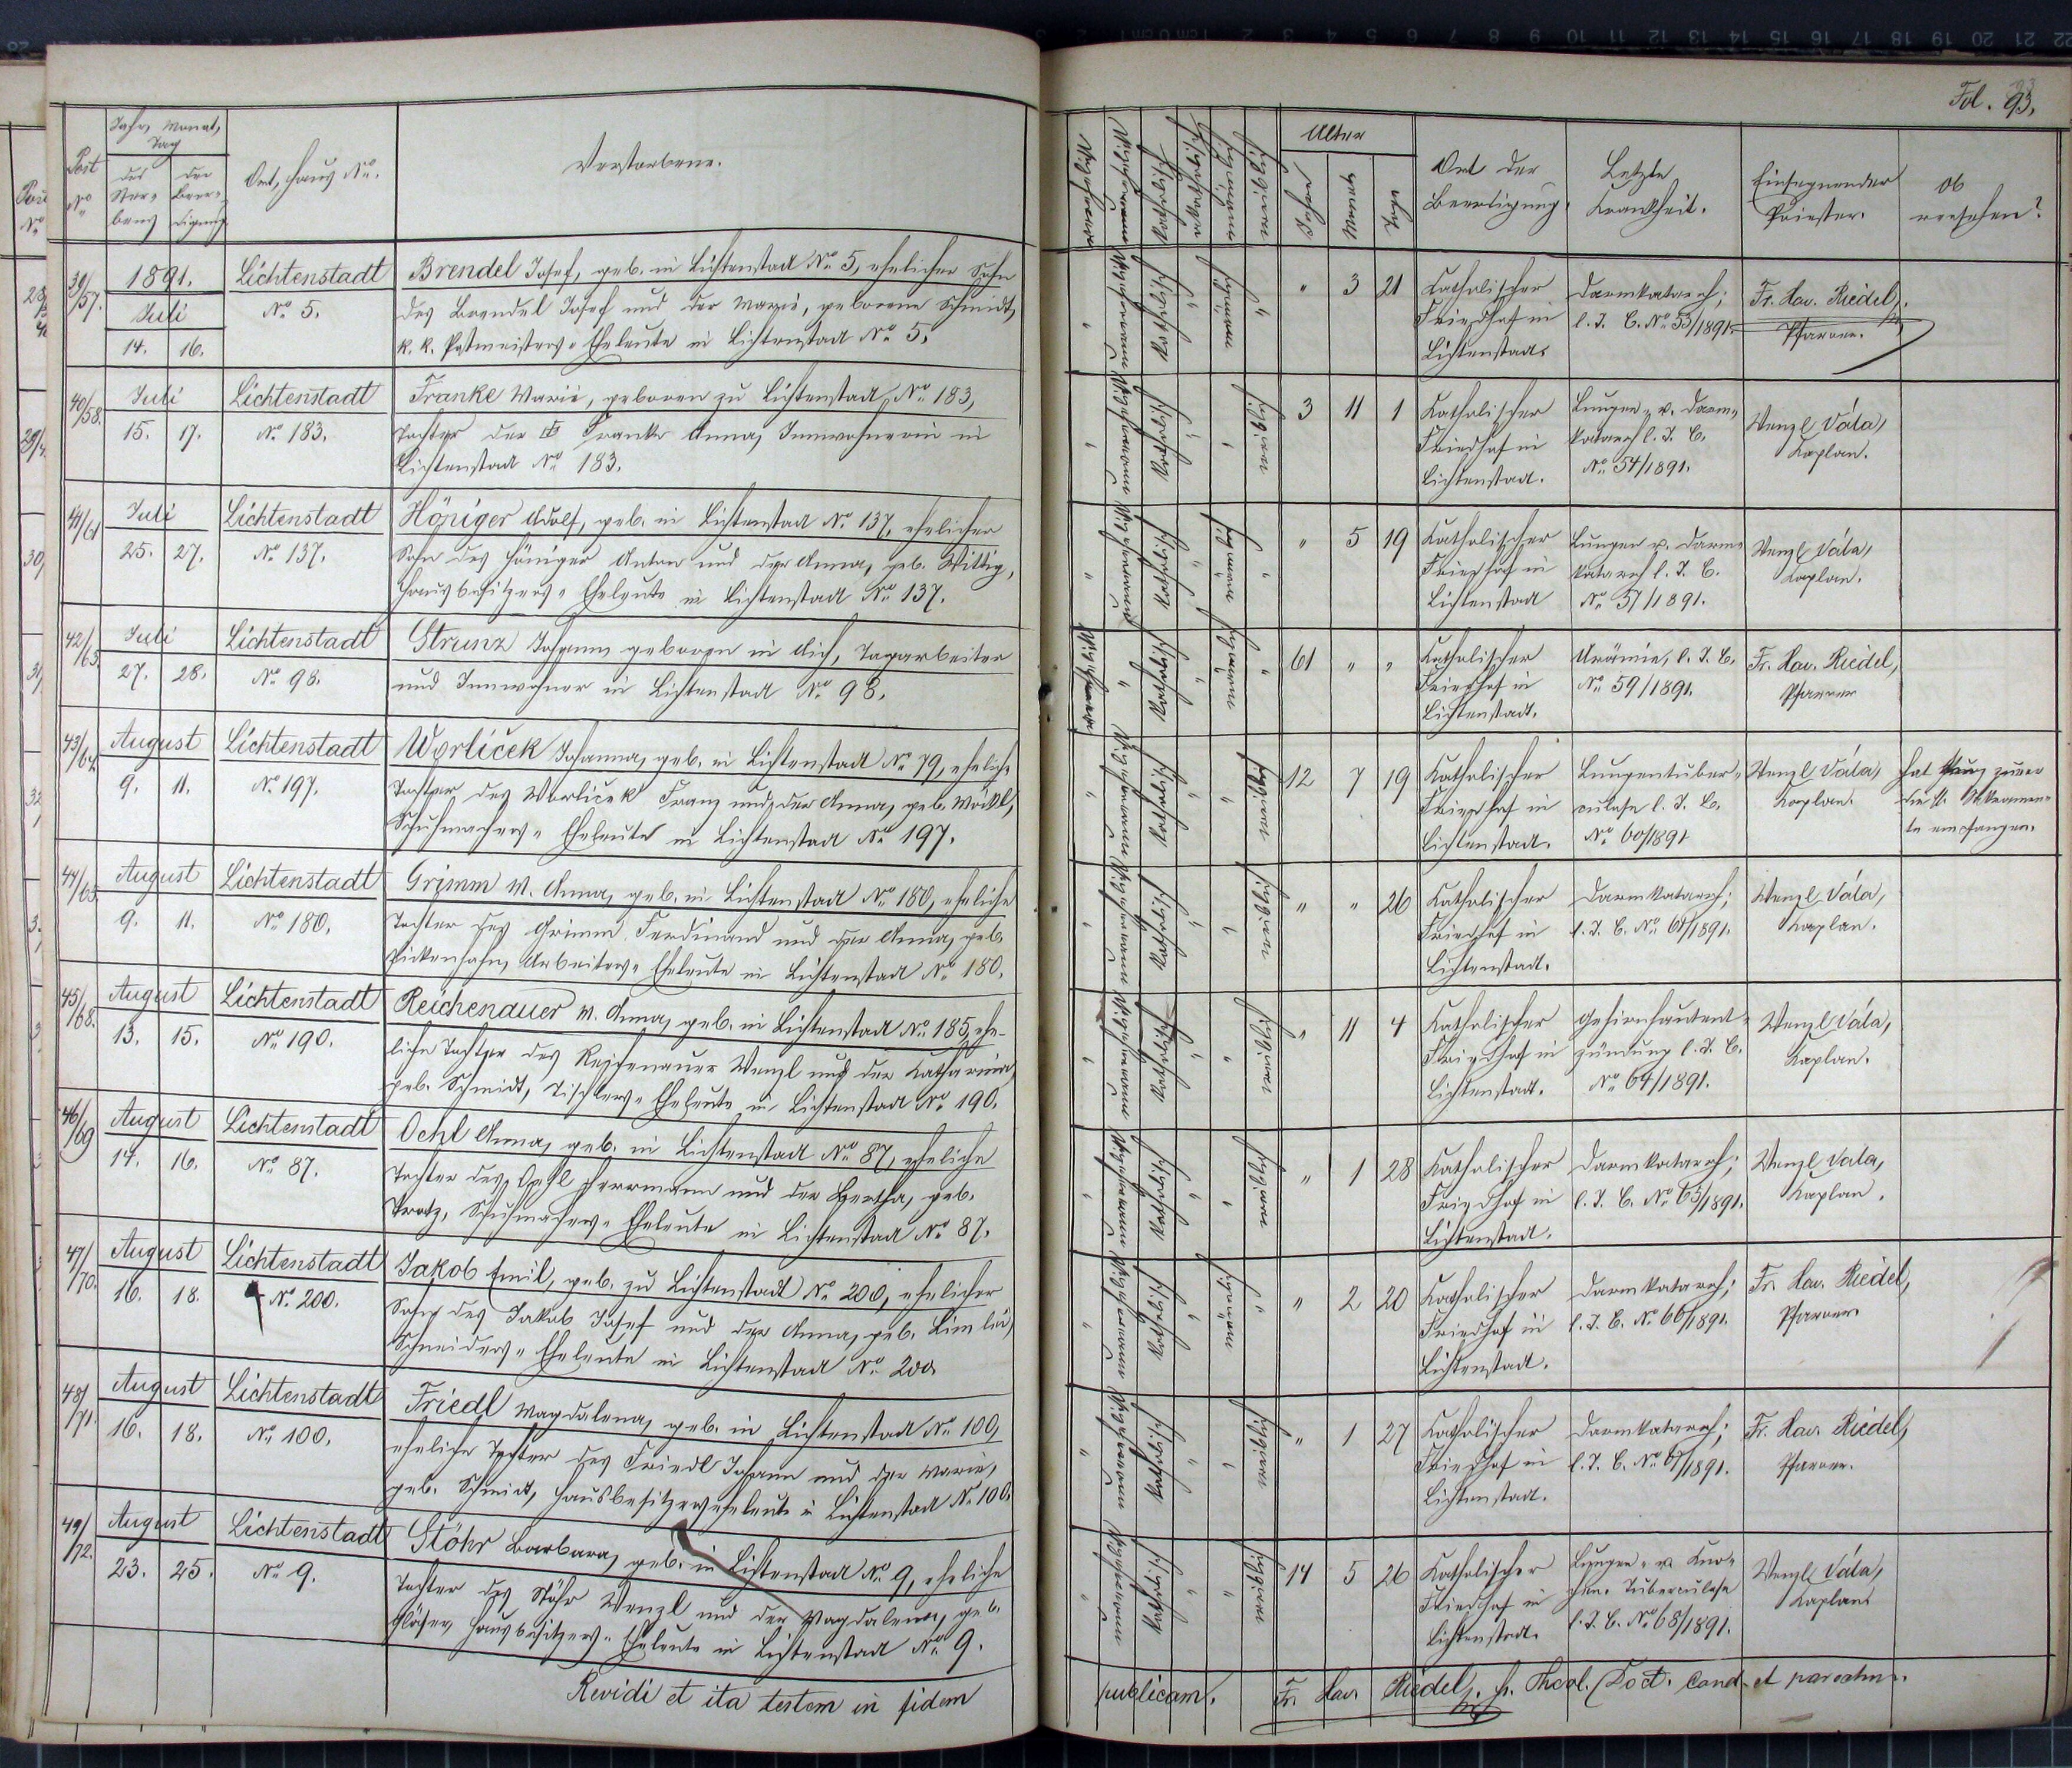 Fol. 93.
Post No
Jahr, Monat, Tag
des Sterbens
der Beerdigung
Ort, Haus No.
Verstorbene.
Katholisch
Alter
Jahre
Monate
Tage
Ort der Beerdigung.
Letzte Krankheit.
Einsegnender Priester.
Ob versehen?
39/57.
1891.
Juli
14. 16.
Lichtenstadt
No 5.
Brendel Josef, geb. in Lichtenstadt No 5, ehelicher Sohn
des Brendel Josef und der Marie, geborene Schmidt,
k. k. Postmeisters-Eheleute in Lichtenstadt No 5.
Katholisch
" 3 21
Katholischer
Friedhof in
Lichtenstadt.
Darmkatarrh;
l. T. C. No 53/1891.
Fr. Xav. Riedel,
Pfarrer.
40/58.
Juli
15. 17.
Lichtenstadt
No 183.
Franke Marie, geboren zu Lichtenstadt No 183,
Tochter der Franke Anna, Innwohnerin in
Lichtenstadt No 183.
Katholisch
3 11 1
Katholischer
Friedhof in
Lichtenstadt.
Lungen- u. Darm-
katarrh l. T. C.
No 54/1891.
Wenzl Vála,
Kaplan.
41/61
Juli
25. 27.
Lichtenstadt
No 137.
Höniger Adolf, geb. in Lichtenstadt No 137, ehelicher
Sohn des Höniger Anton und der Anna, geb. Wittig,
Hausbesitzers-Eheleute in Lichtenstadt No 137.
Katholisch
" 5 19
Katholischer
Friedhof in
Lichtenstadt
Lungen u. Darm-
katarrh l. T. C.
No 57/1891.
Wenzl Vála,
Kaplan.
42/63.
Juli
27. 28.
Lichtenstadt
No 98.
Strunz Johann, geboren in Aich, Tagarbeiter
und Innwohner in Lichtenstadt No 98.
Katholisch
61 " "
Katholischer
Friedhof in
Lichtenstadt.
Urämie, l. T. C.
No 59/1891.
Fr. Xav. Riedel,
Pfarrer
43/64.
August
9. 11.
Lichtenstadt
No 197.
Worliček Johanna, geb. in Lichtenstadt No 79, eheliche
Tochter des Worliček Franz und der Anna, geb. Wöckl,
Schuhmachers-Eheleute in Lichtenstadt No 197.
Katholisch
12 7 19
Katholischer
Friedhof in
Lichtenstadt.
Lungentuber-
culose l. T. C.
No 60/1891
Wenzl Vála,
Kaplan.
hat kurz zuvor
die hl. Sakramen-
te empfangen.
44/65.
August
9. 11.
Lichtenstadt
No 180.
Grimm M. Anna, geb. in Lichtenstadt No 180, eheliche
Tochter des Grimm Ferdinand und der Anna, geb.
Pickenhahn, Arbeiters-Eheleute in Lichtenstadt No 180.
Katholisch
" " 26
Katholischer
Friedhof in
Lichtenstadt.
Darmkatarrh;
l. T. C. No 61/1891.
Wenzl Vála,
Kaplan.
45/68.
August
13. 15.
Lichtenstadt
No 190.
Reichenauer M. Anna, geb. in Lichtenstadt No 185, ehe-
liche Tochter des Reichenauer Wenzl und der Katharina,
geb. Schmidt, Tischlers-Eheleute in Lichtenstadt No 190.
Katholisch
" 11 4
Katholischer
Friedhof in
Lichtenstadt.
Gehirnhautent-
zündung l. T. C.
No 64/1891.
Wenzl Vála,
Kaplan.
46/69
August
14. 16.
Lichtenstadt
No 87.
Oehl Anna, geb. in Lichtenstadt No 87, eheliche
Tochter des Oehl Herrmann und der Bertha, geb.
Protz, Schuhmachers-Eheleute in Lichtenstadt No 87.
Katholisch
" 1 28
Katholischer
Friedhof in
Lichtenstadt.
Darmkatarrh;
l. T. C. No 65/1891.
Wenzl Vala,
Kaplan.
47/70.
August
16. 18.
Lichtenstadt
No 200.
Jakob Emil, geb. zu Lichtenstadt No 200, ehelicher
Sohn des Jakob Josef und der Anna, geb.
Schneiders-Eheleute in Lichtenstadt No 200.
Katholisch
" 2 20
Katholischer
Friedhof in
Lichtenstadt.
Darmkatarrh;
l. T. C. No 66/1891.
Fr. Xav. Riedel,
Pfarrer
48/71.
August
16. 18.
Lichtenstadt
No 100.
Friedl Magdalena, geb. in Lichtenstadt No 100,
eheliche Tochter des Friedl Johann und der Marie,
geb. Schmidt, Hausbesitzerseheleute in Lichtenstadt No 100.
Katholisch
" 1 27
Katholischer
Friedhof in
Lichtenstadt.
Darmkatarrh;
l. T. C. No 67/1891.
Fr. Xav. Riedel,
Pfarrer.
49/72.
August
23. 25.
Lichtenstadt
No 9.
Stöhr Barbara, geb. in Lichtenstadt No 9, eheliche
Tochter des Stöhr Wenzl und der Magdalena, geb.
Gläser, Hausbesitzers-Eheleute in Lichtenstadt No 9.
Katholisch
14 5 26
Katholischer
Friedhof in
Lichtenstadt.
Lungen- u. Kno-
chen-Tuberculose
l. T. C. No 68/1891.
Wenzl Vála,
Kaplan
Revidi et ita testem in fidem
publicam. Fr. Xav. Riedel, Theol. Doct. Cand. et parochus.